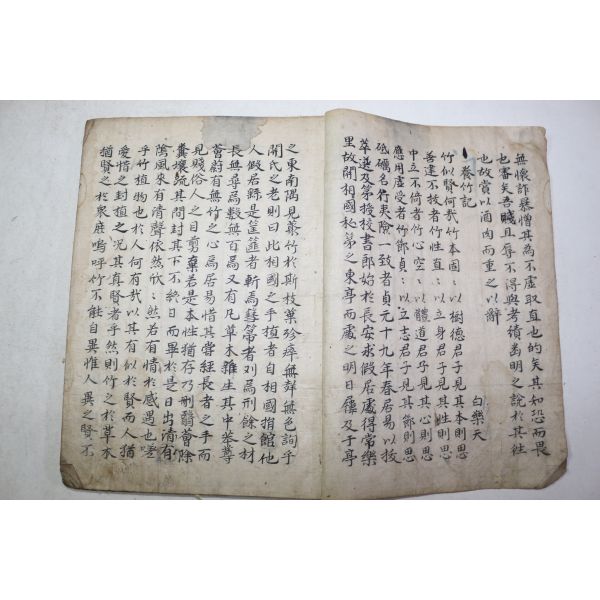 無懷師暴僧其為不虛取直也的矣其如恐而畏
也審矣吾賤且辱不得與考積出明之說於其往
也故賞以酒肉而重之以辭
養竹記 白樂天
竹似賢何哉竹本固〻以樹德君子見其本則思
善建不拔者竹性直〻以立身君子見其性則思
中立不倚者竹心空〻以體道君子見其心則思
應用虛受者竹節貞〻以立志君子見其節則思
砥礪名行夷險一致者貞元十九年春居易以拔
萃選及第授校書郎始於長安求假居處得常樂
里故關相國私第之東亭而處之明日屨及于亭
之東南隅見藂竹於斯枝葉殄瘁無聲無色詢乎
關氏之老則曰此相國之手植者自相國捐館他
人假居繇是筐篚者斬焉篲箒者刈焉刑餘之材
長無尋焉數無百焉又有凡草木雜生其中菶茸
薈蔚有無竹之心焉居易惜其嘗經長者之手而
見賤俗人之目剪棄若是本性猶存乃刪翳薈除
糞壤疏其間封其下不終日而畢於是日出有清
陰風來有清聲依然欣〻然若有情於感遇也嗟
乎竹植物也於人何有哉以其有似於賢而人猶
愛惜之封植之况其真賢者乎然則竹之於草木
猶賢之於衆庶嗚呼竹不能自異惟人異之賢不